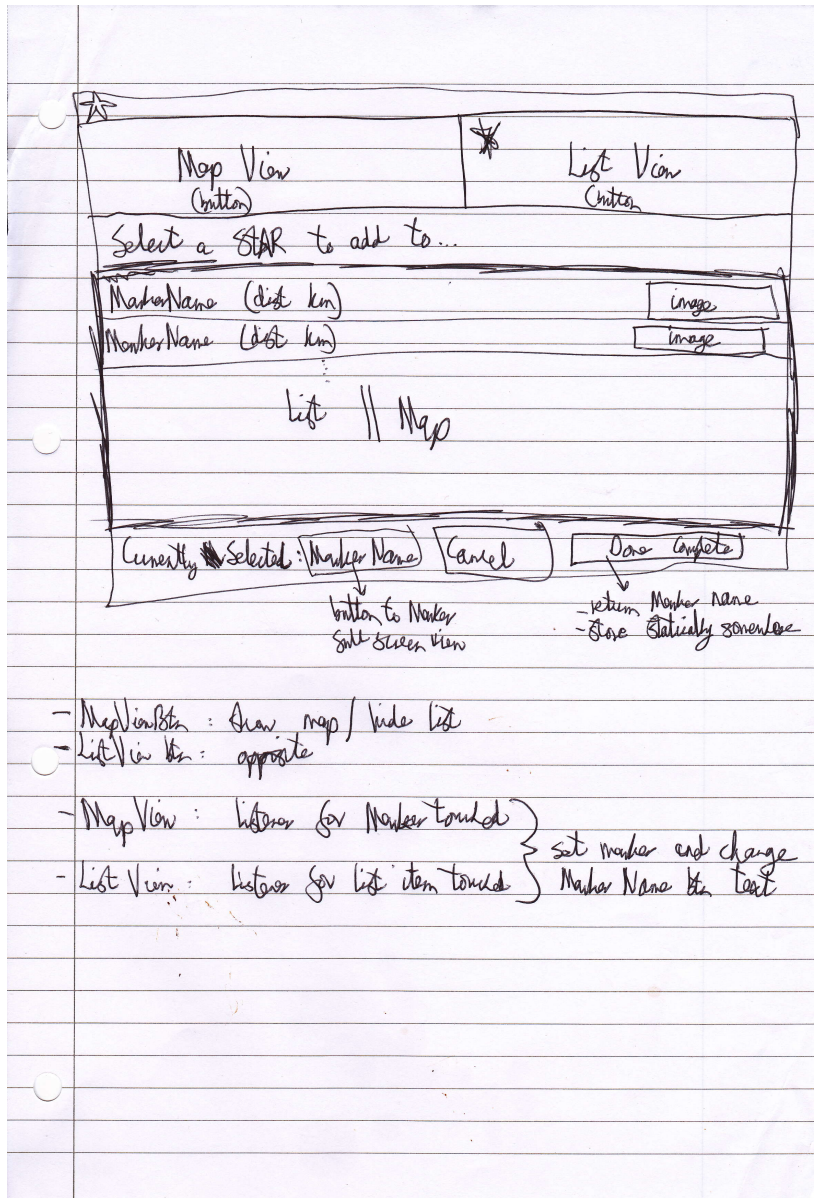 Map View
(button)
List View
(button
Select a STAR to add to...
MarkerName (dist km)
image
MarkerName (dist km)
image
List || Map
Currently Selected: Marker Name
Cancel
Done Complete
button to Marker
full screen view
- return Marker name
- store statically somewhere
- MapViewBtn : show map / hide list
- ListView btn : opposite
- MapView : Listener for Marker touched
- List View : Listener for list item touched
set marker and change
Marker Name btn text